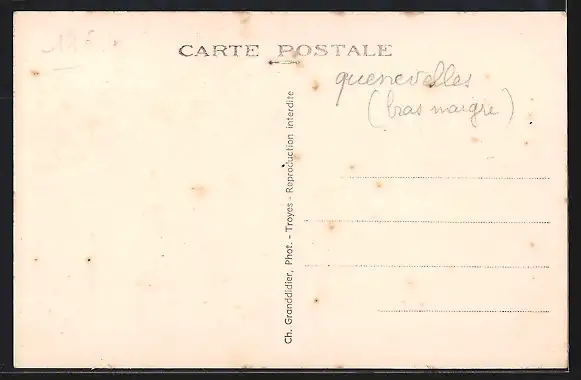 CARTE POSTALE
quenevelles
(bras maigre)
Ch. Granddidier, Phot. - Troyes - Reproduction interdite